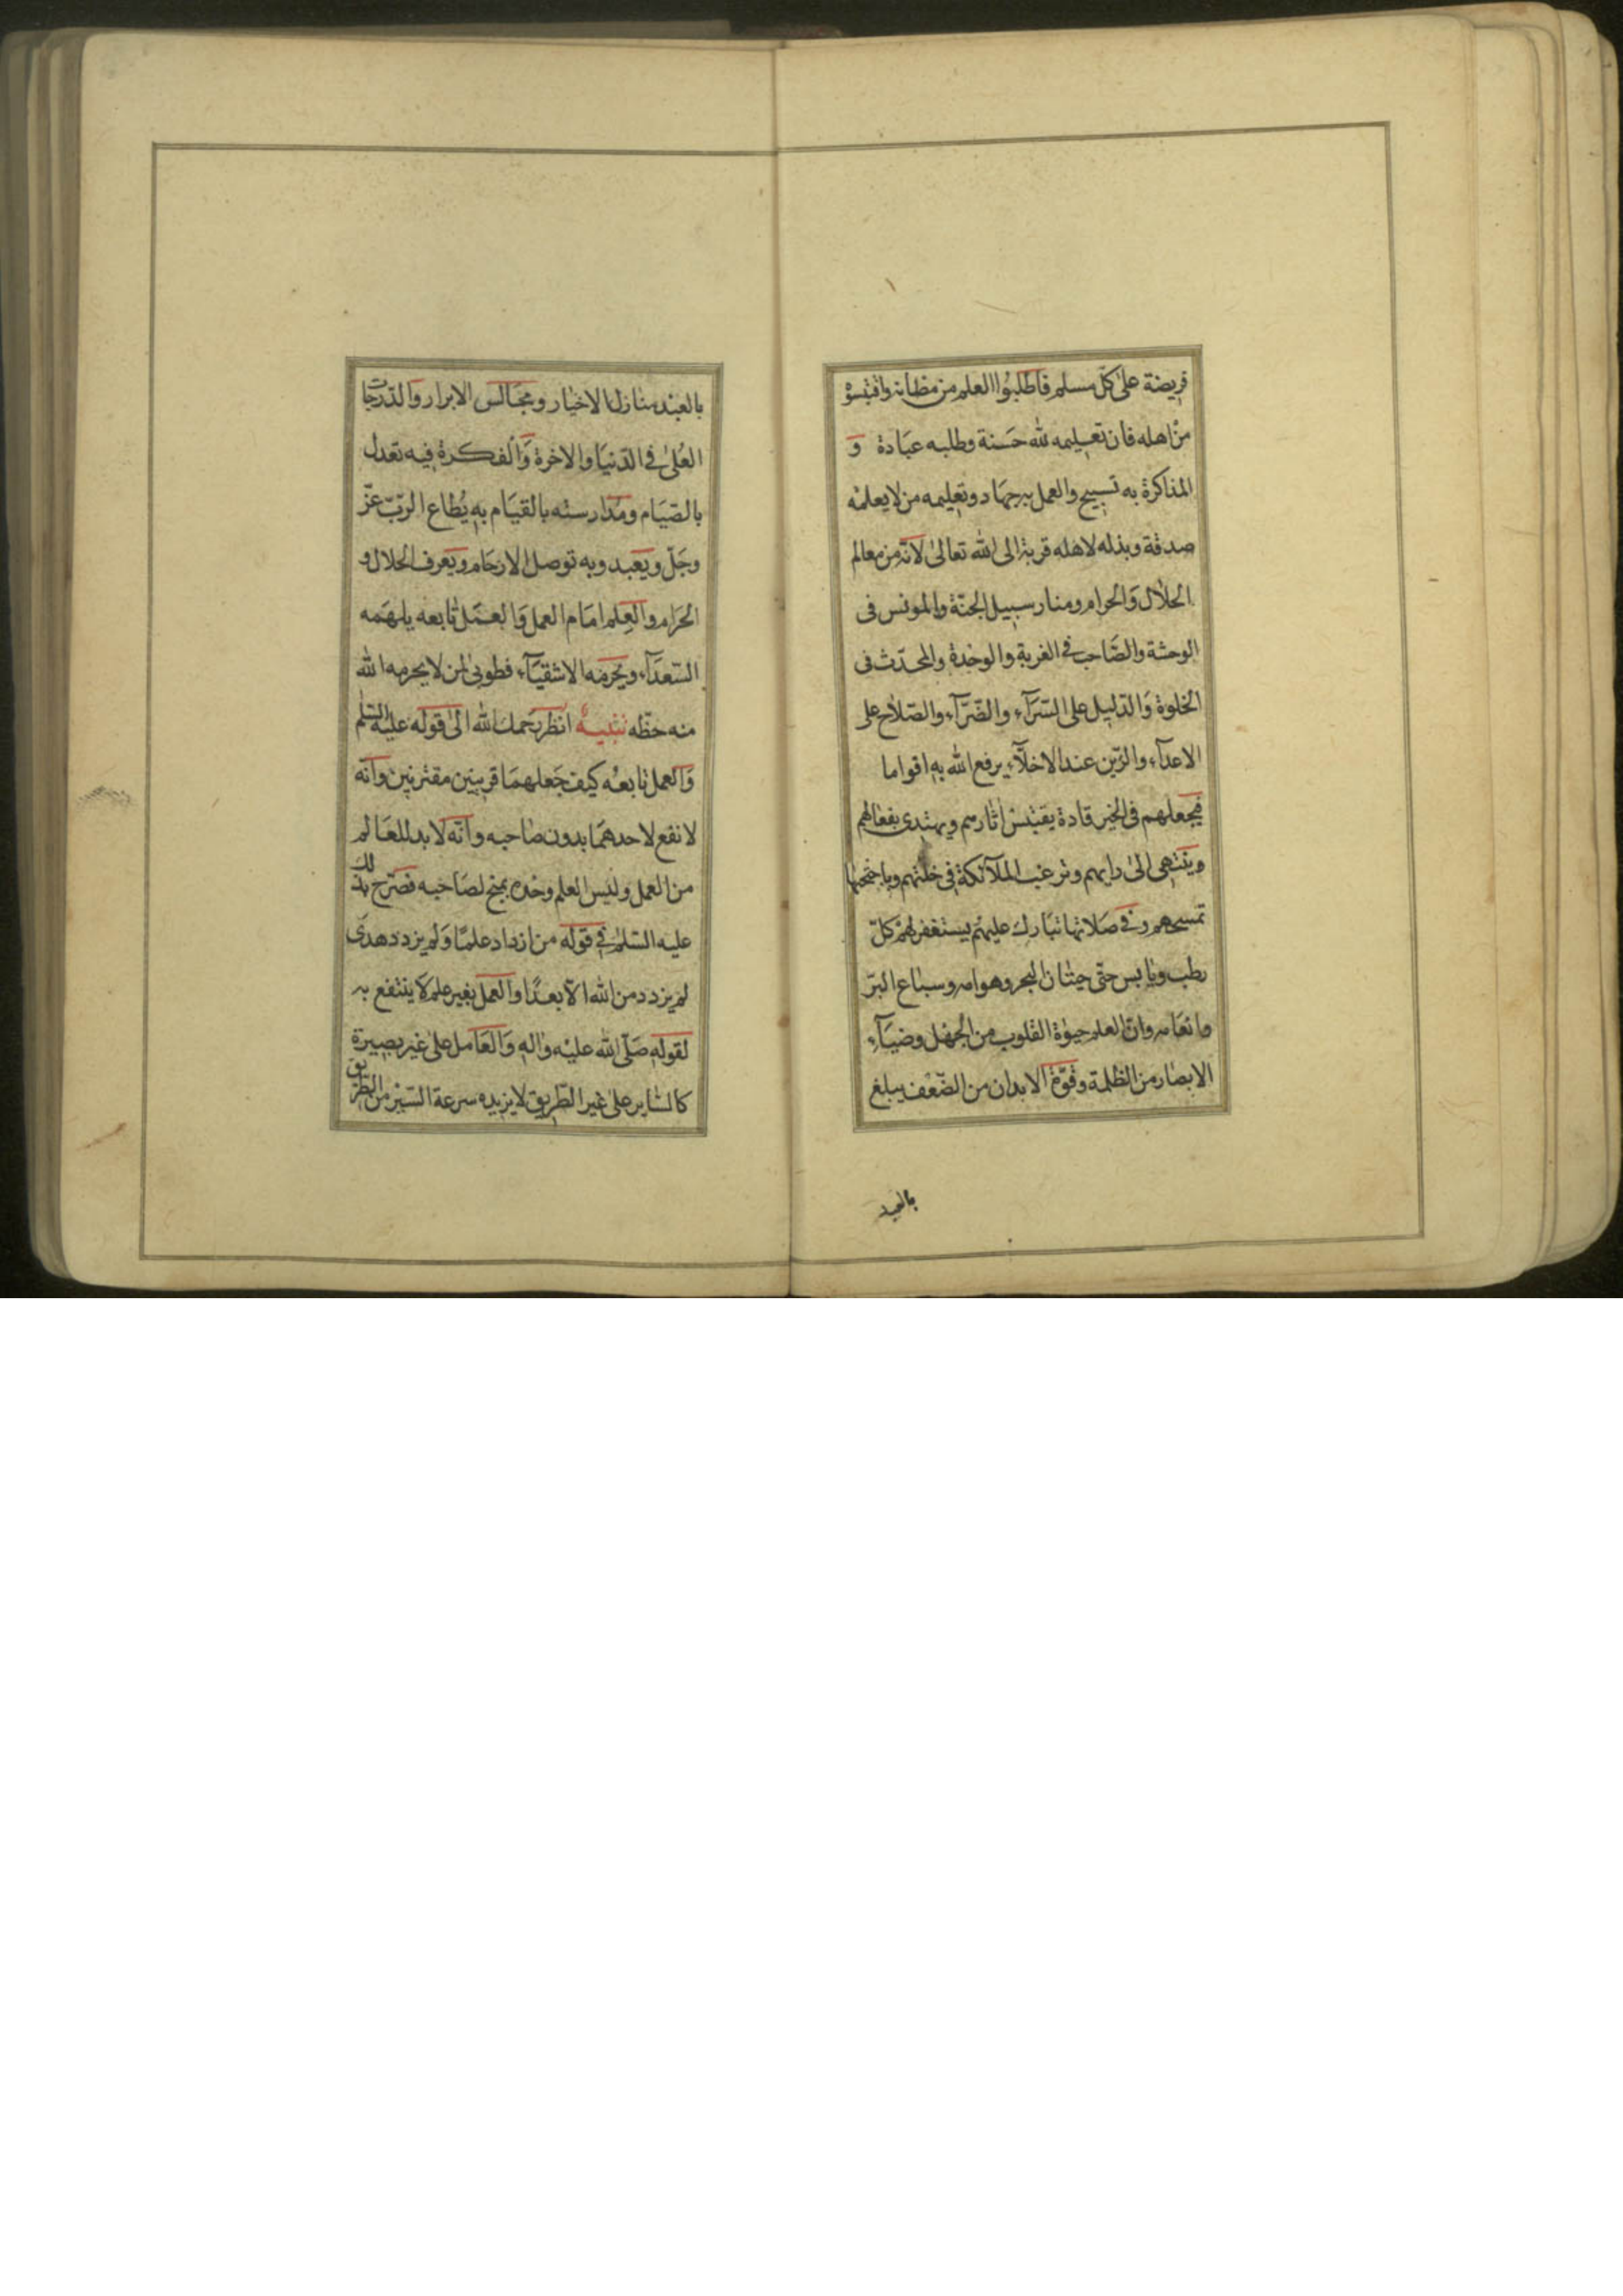 فريضة علىٰ كلّ مسلم فاطلبُوا العلم من مظانه واقتبسوه
من اهله فان تعليمه لله حَسَنة وطلبه عبَادة وَ
المذاكرة به تسبيح والعمل به جهاد وتعليمه من لا يعلمه
صدقة وبذله لاهله قربة الى الله تعالىٰ لانّه من معالم
الحلال وَالحرام ومنار سبيل الجنّة والمونس فى
الوحشة والصَّاحب فى الغربة والوحْدة والمحدّث فى
الخلوة وَالدّليل على السّرّآء والضّرّآء والصّلاح على
الاعدآء والزّين عند الاخلّآء يرفع الله به اقواما
فيجعلهم فى الخير قادة يقتبس اثارهم ويهتدى بفعالهم
وينتهى الىٰ رايهم وترغب الملآئكة فى خلّتهم وباجنحتها
تمسحهم وفى صَلاتها تبَارك عليهم يستغفر لهمْ كلّ
رطب ويابس حتّى حيتان البحر وهوامه وسباع البَرّ
وانعَامه وانّ العلم حيوٰة القلوب من الجهْل وضيَآء
الابصٰار من الظلمة وقوّة الابدان من الضّعْف يبلغ
بالعبد
بالعبْد منازل الاخيٰار ومجَالس الابرار وَالدّرجٰات
العُلىٰ فى الدّنيَا والاخرة وَالفكرة فيه تعدل
بالصّيَام ومُدارسته بالقيَام به يُطاع الرّبّ عزّ
وجَلّ ويَعْبد وبه توصل الارحَام ويَعرف الحلال و
الحَرام والعِلم امَام العمل وَالعمَل تٰابعه يلهَمه
السّعدَآء ويحرمَه الاشقيَآء فطوبىٰ لمن لا يحرمه الله
منه حظّه تنبْيه انظر رحمك الله الىٰ قوله عليْه السّلم
وَالعمل تابعُه كيف جَعلهمَا قرينين مقترنين وانّه
لا نفع لاحدهمَا بدون صٰاحبه وانّه لابد للعَالم
من العمل وليْس العلم وحْده بمنج لصَاحبه فصَرّح بذلك
عليه السّلم فى قوله من ازداد علمًا وَلم يزدد هدَى
لم يزدد من الله الّا بعدًا والعمل بغير علم لا ينتفع به
لقوله صَلّى الله عليْه واله وَالعَامل علىٰ غير بصيرة
كالسّٰاير علىٰ غير الطّريق لا يزيده سرعة السّيْر من الطّريق